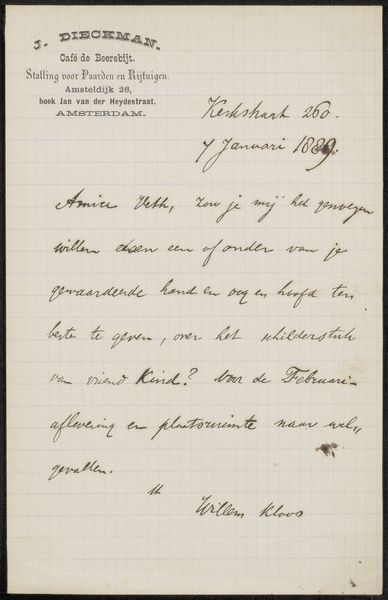 J. DIECKMAN.
Café de Beerebijt.
Stalling voor Paarden en Rijtuigen.
Amsteldijk 26,
hoek Jan van der Heydestraat.
AMSTERDAM.
Kerkstraat 260.
7 Januari 1889.
Amice Veth, zou je mij het genoegen
willen doen een of ander van je
gewaardeerde hand en oog en hoofd ten
beste te geven, over het schilderstuk
van vriend Kind? Voor de Februari-
aflevering en plaatsruimte naar wel„
gevallen.
Willem Kloos